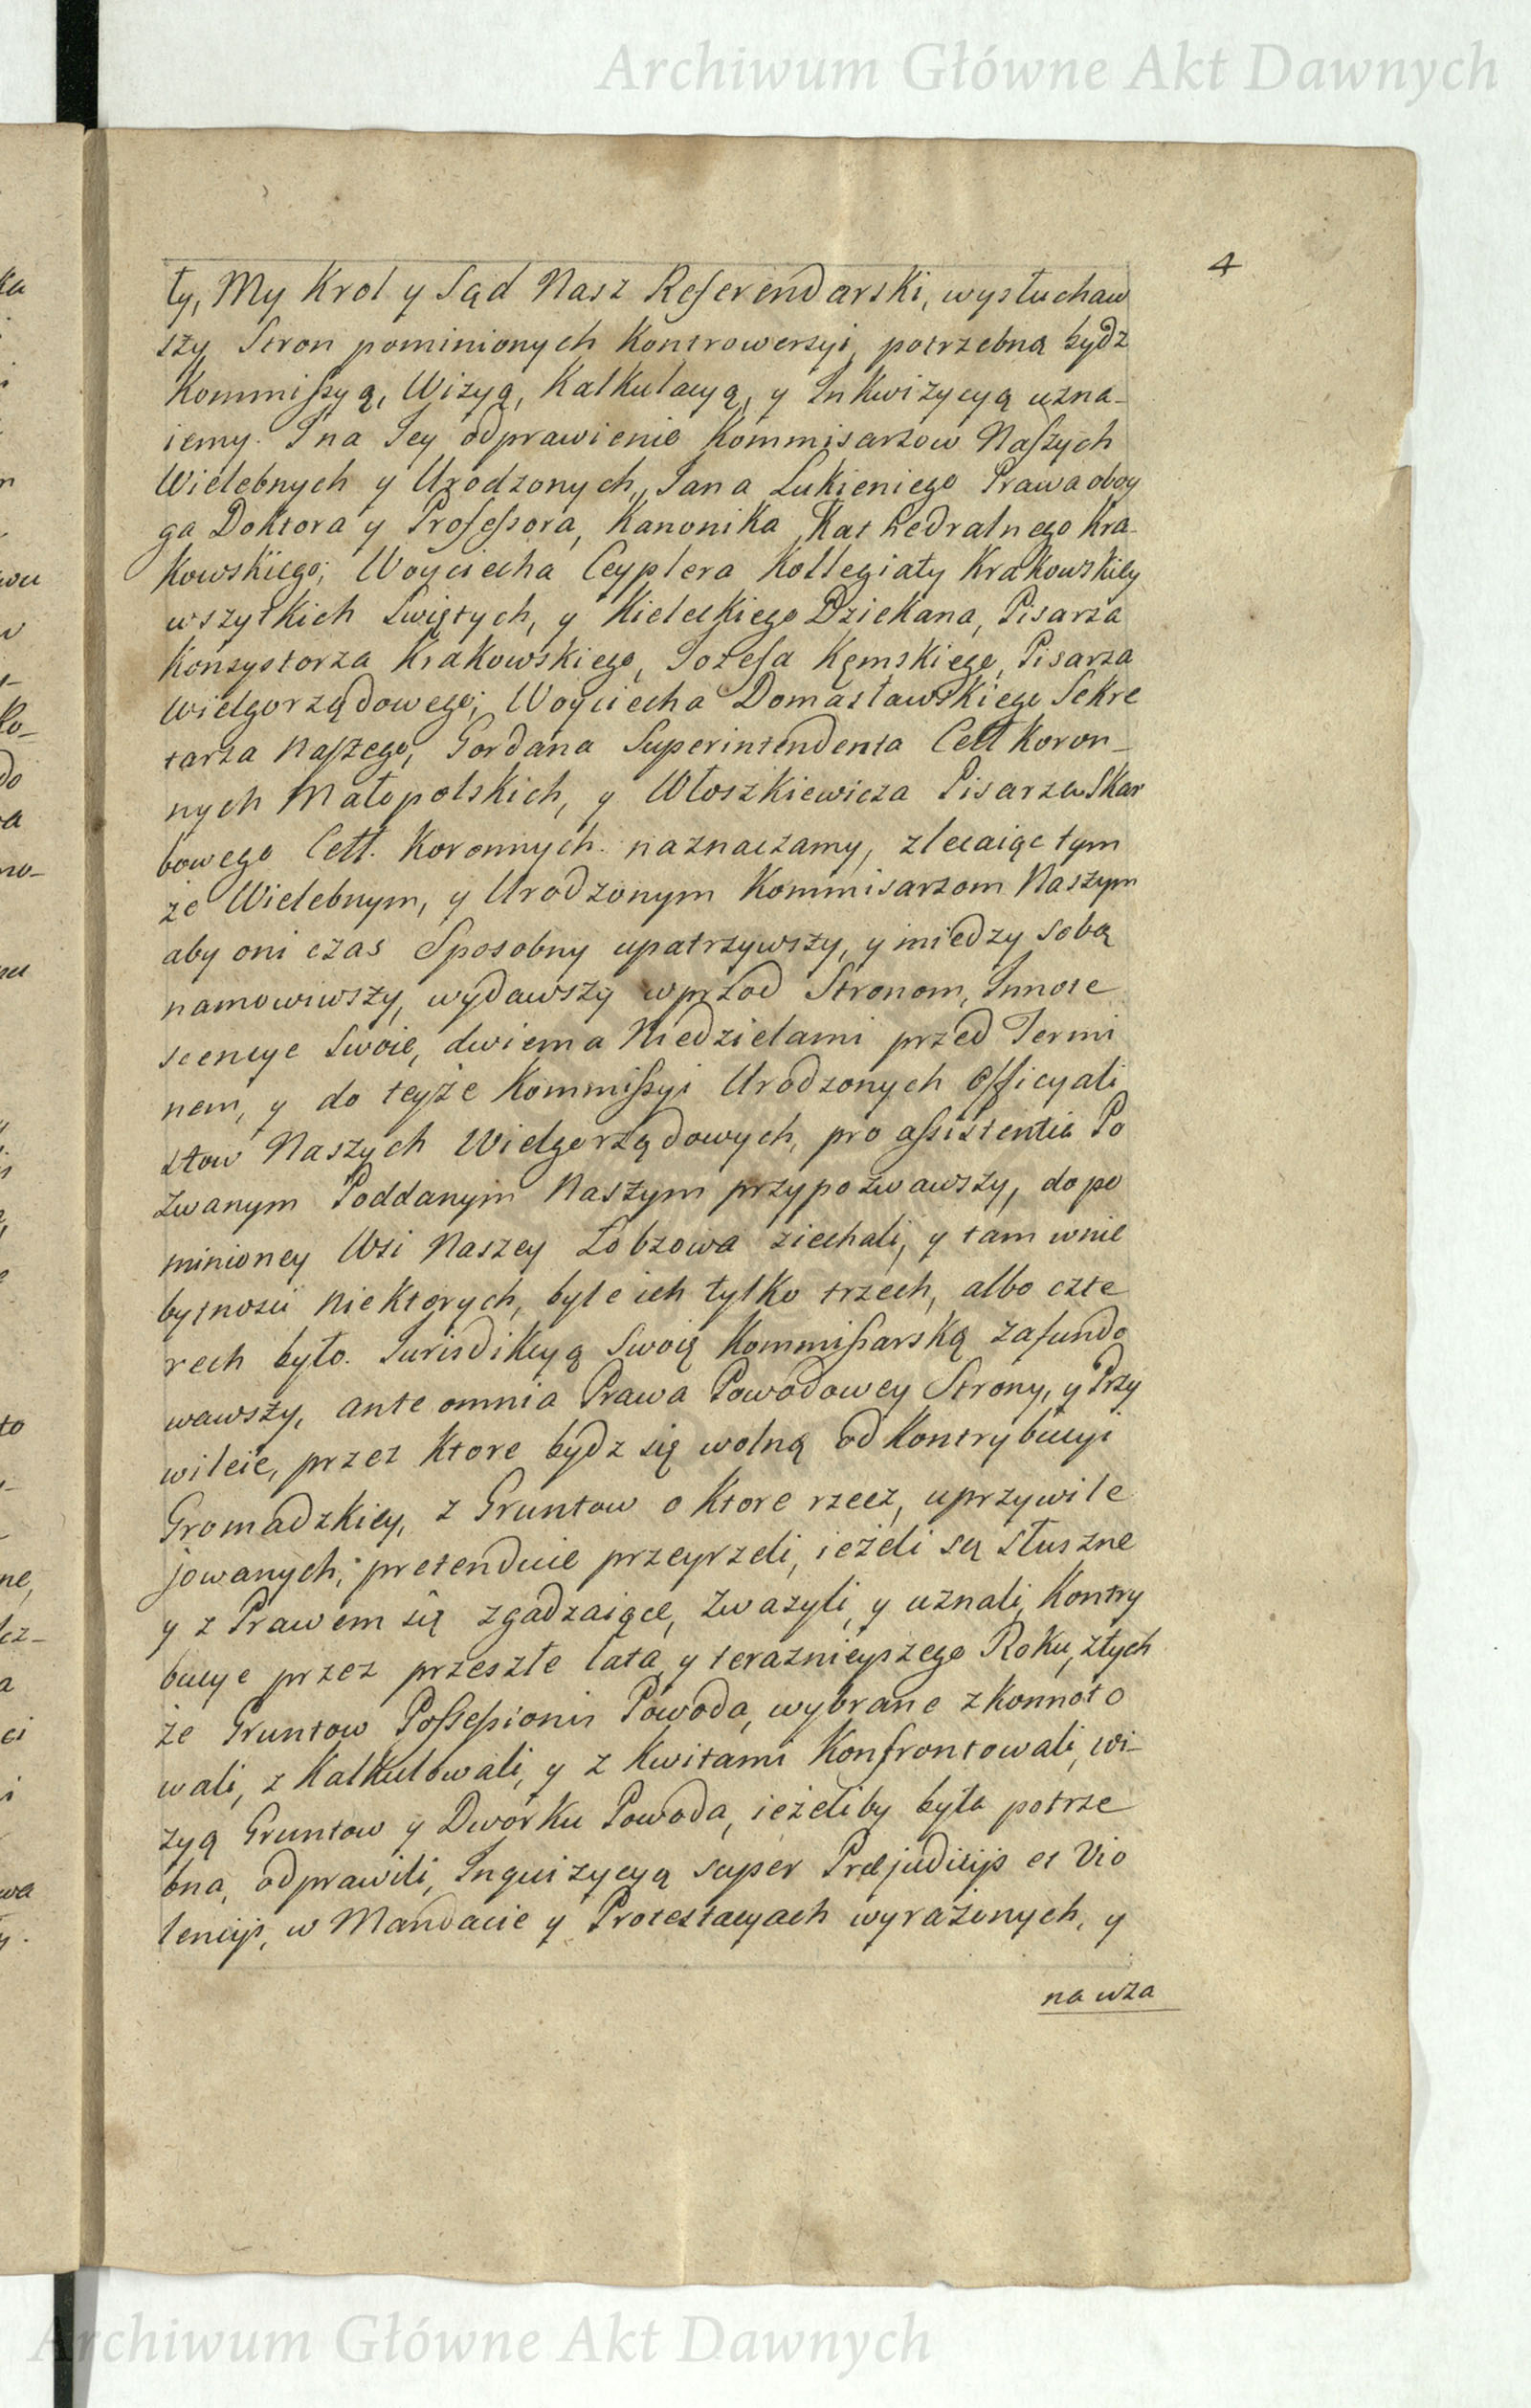 Archiwum Główne Akt Dawnych
4
ty, My Krol y Sąd Nasz Referendarski, wysłuchaw
szy Stron pominionych Kontrowersyi, potrzebną bydz
Kommissyą, Wizyą, Kalkulacyą, y Inkwizycyą uzna-
iemy. I na Iey odprawienie Kommisarzow Naszych
Wielebnych y Urodzonych, Jana Lukieniego Prawa oboy
ga Doktora y Professora, Kanonika Kathedralnego Kra-
kowskiego; Woyciecha Ceyplera Kollegiaty Krakowskiey
wszytkich Swiętych, y Kieleckiego Dziekana, Pisarza
Konsystorza Krakowskiego, Jozefa Kęmskiego, Pisarza
Wielgorządowego; Woyciecha Domasławskiego Sekre
tarza Naszego, Jordana Superintendenta Cełł Koron-
nych Małopolskich, y Włoszkiewicza Pisarza Skar
bowego Cełł. Koronnych. naznaczamy, zlecaiąc tym
że Wielebnym, y Urodzonym Kommisarzom Naszym
aby oni czas Sposobny upatrzywszy, y miedzy sobą
namowiwszy, wydawszy wprzod Stronom, Innote
scencye Swoie, dwiema Niedzielami przed Termi
nem, y do teyże Kommissyi Urodzonych Officyali
stow Naszych Wielgorządowych, pro assistentia Po
zwanym Poddanym Naszym przypozwawszy, do po
minioney Wsi Naszey Łobzowa ziechali, y tam w nie
bytnosci niektorych, byle ich tylko trzech, albo czte
rech było. Jurisdikcyą Swoię Kommissarską zafundo
wawszy, ante omnia Prawa Powodowey Strony, y Przy
wileie, przez ktore bydz się wolną od Kontrybucyi
Gromadzkiey, z Gruntow o ktore rzecz, uprzywile
jowanych, pretenduie przeyrzeli, ieżeli są słuszne
y z Prawem się zgadzaiące, zwazyli, y uznali, Kontry
bucye przez przeszłe lata, y teraznieyszego Roku, z tych
że Gruntow Possessionis Powoda, wybrane zkonnoto
wali, zKalkulowali, y z Kwitami Konfrontowali, wi-
zyą Gruntow y Dworku Powoda, ieżeliby była potrze
bna, odprawili, Inquizycyą super Præjudicijs et Vio
lencijs, w Mandacie y Protestacyach wyrażonych, y
na wza
Archiwum Główne Akt Dawnych